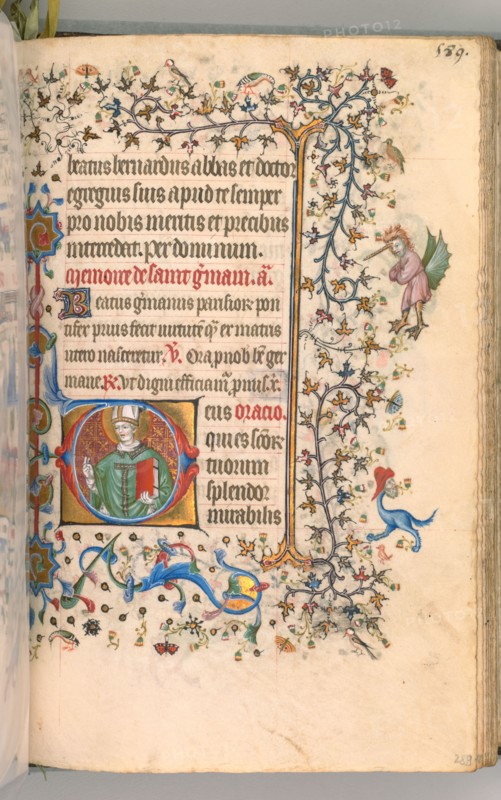 589.
beatus bernardus abbas et doctor
egregius suus apud te semper
pro nobis meritis et precibus
intercedat. Per dominum.
Memoire de saint g̃main. a᷉.
Beatus g̃manus parisioꝝ pon
tifex prius fecit uirtutẽ qȝ ex matris
utero nasceretur. V̷. Ora ꝓ nob̃ bẽ ger
mane. R̷. Vt digni efficiam̃ ꝓmis. x.
Deus Oracio.
qui es sc̃oꝝ
tuorum
splendor
mirabilis
PHOTO12